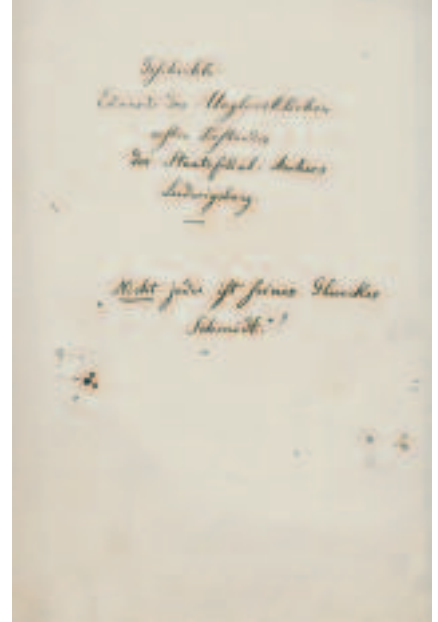 Geschichte
Eduards des Unglücklichen
ersten Vorstandes
des Staatsfilial-Archivs
Ludwigsburg
„Nicht jeder ist seines Glückes
Schmidt."!